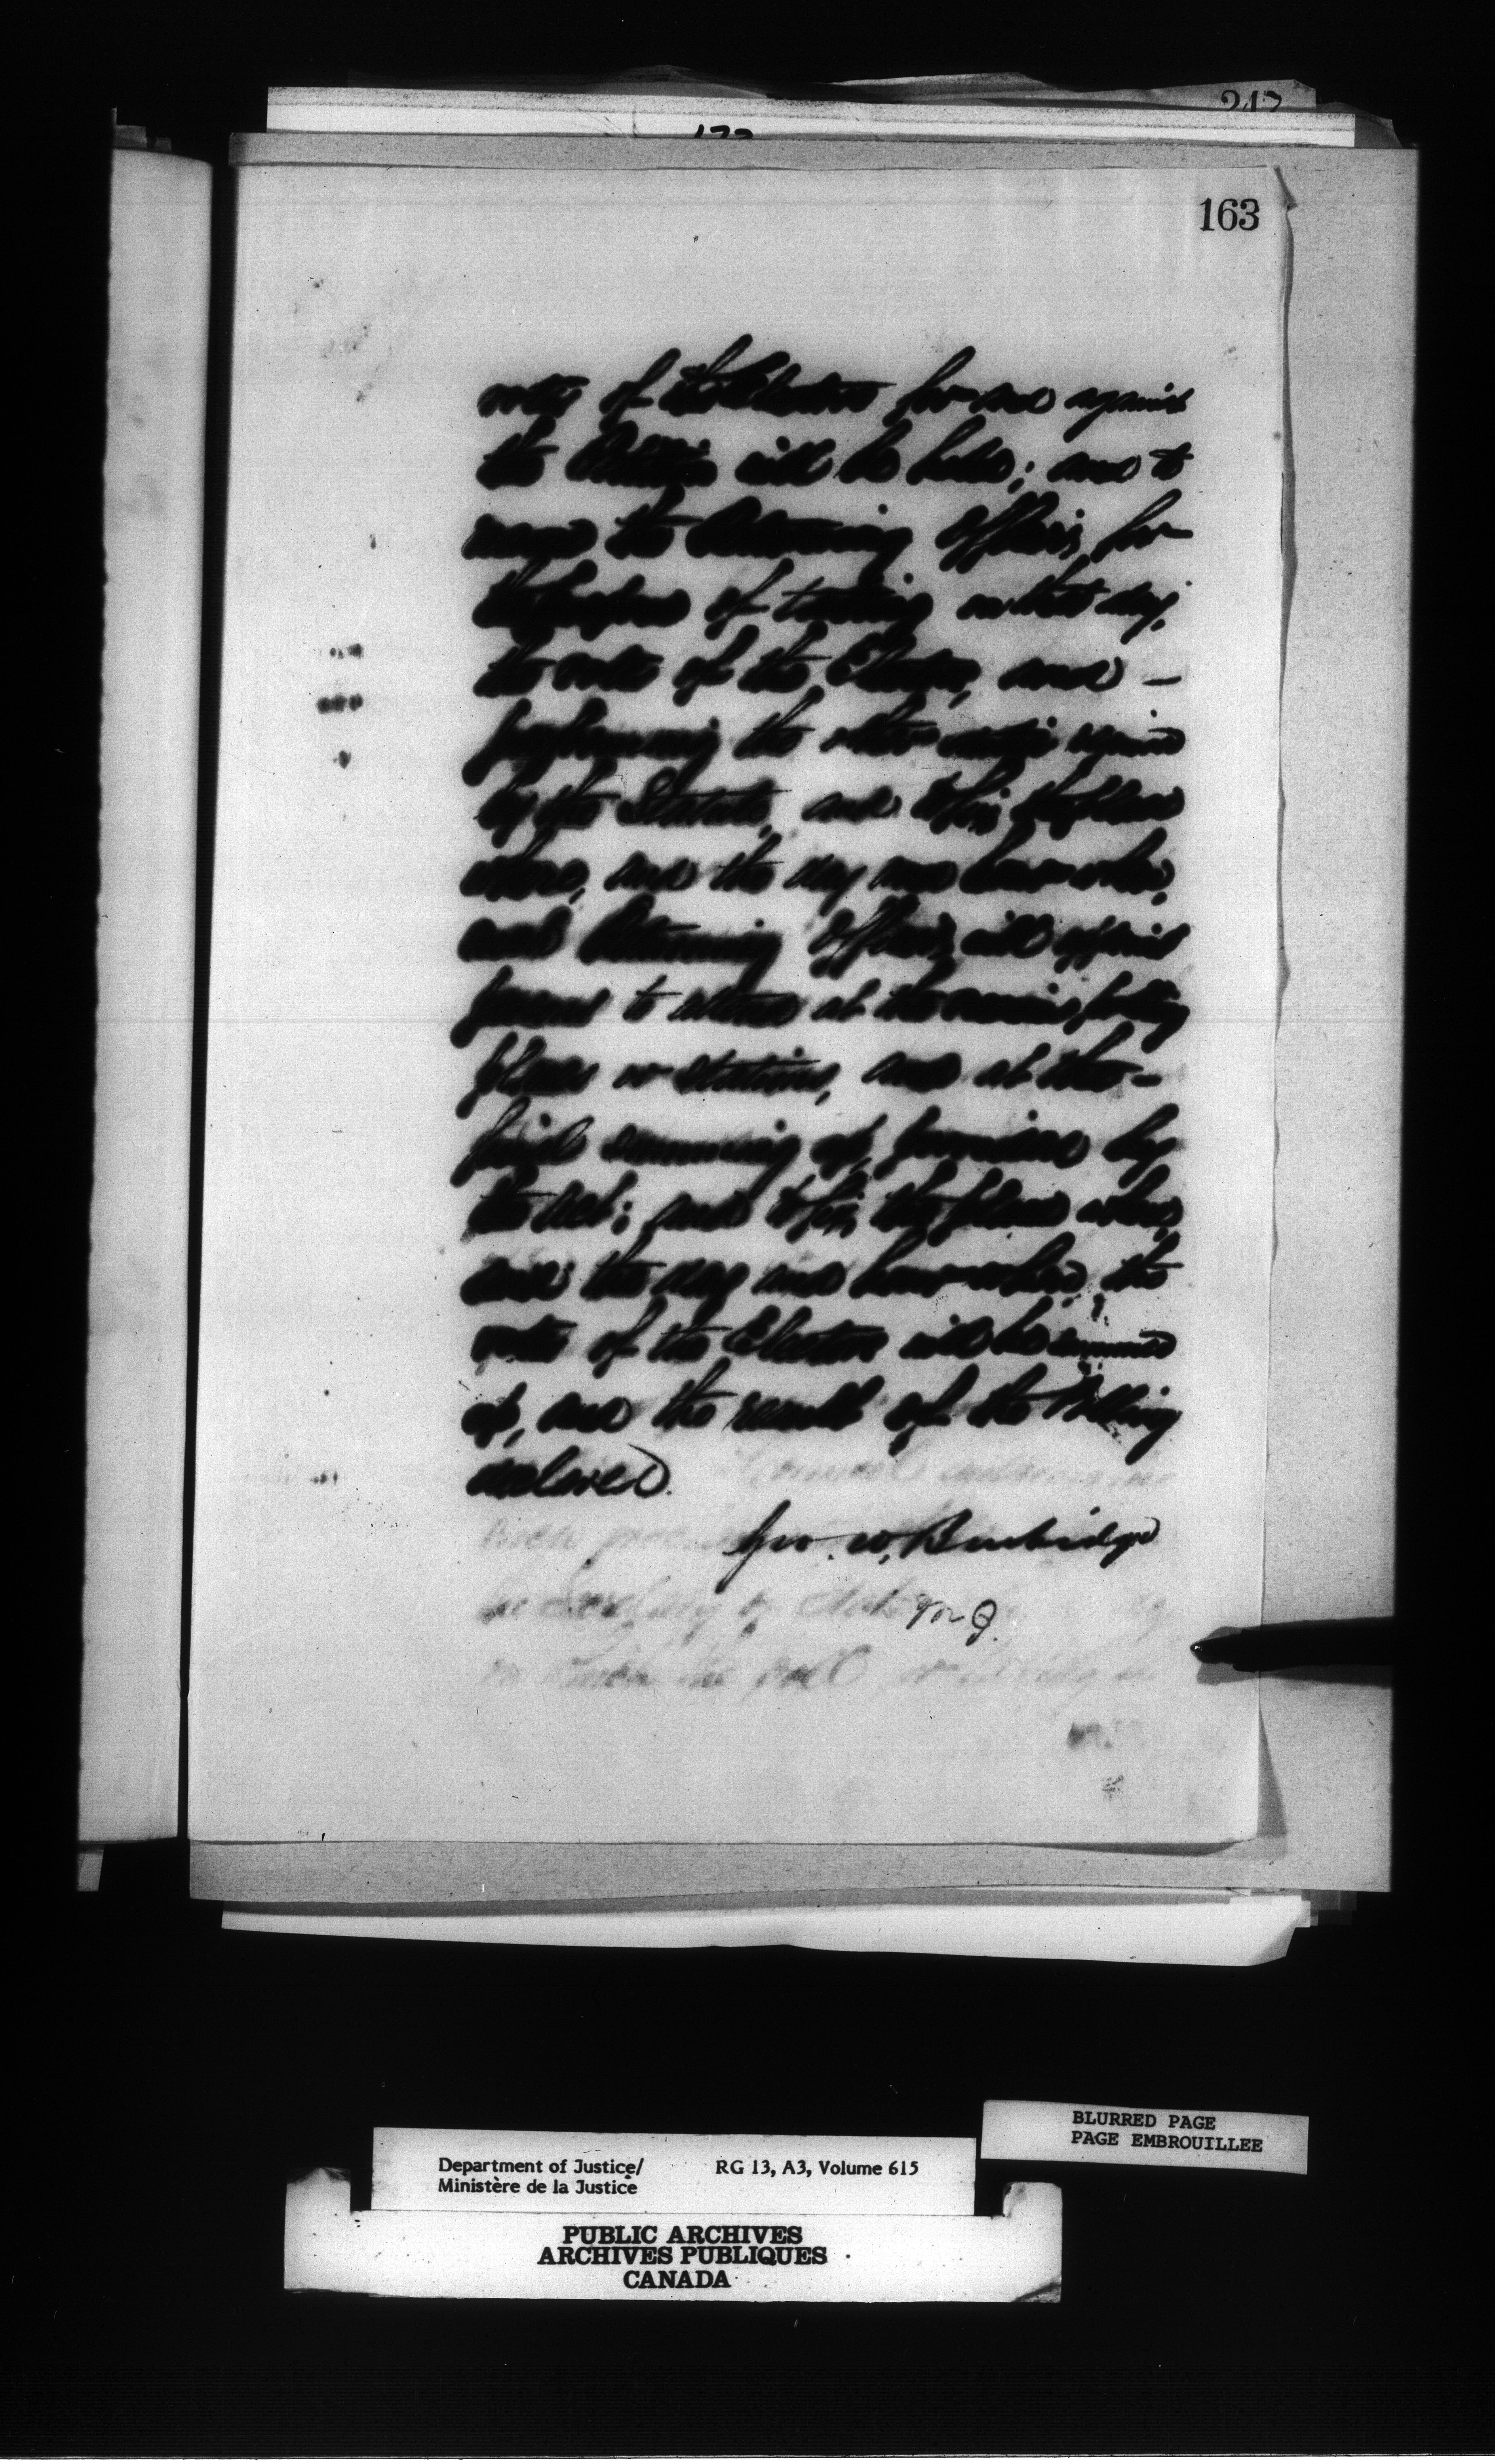 163
votes of the Electors for and against
the Petition will be held; and to
name the Returning Officer, for
the purpose of taking on that day,
the votes of the Electors, and –
performing the other duties required
by the Statute, and to fix the place
where, and the day and hour when,
such Returning Officer will appoint
persons to attend at the various polling
places or stations, and at the –
final summing up, provided by
the Act; and to fix the place where,
and the day and hour when, the
votes of the Electors will be summed
up, and the result of the Polling
declared.
Geo. W. Burbidge
BLURRED PAGE
PAGE EMBROUILLEE
Department of Justice/ RG 13, A3, Volume 615
Ministère de la Justice
PUBLIC ARCHIVES
ARCHIVES PUBLIQUES
CANADA